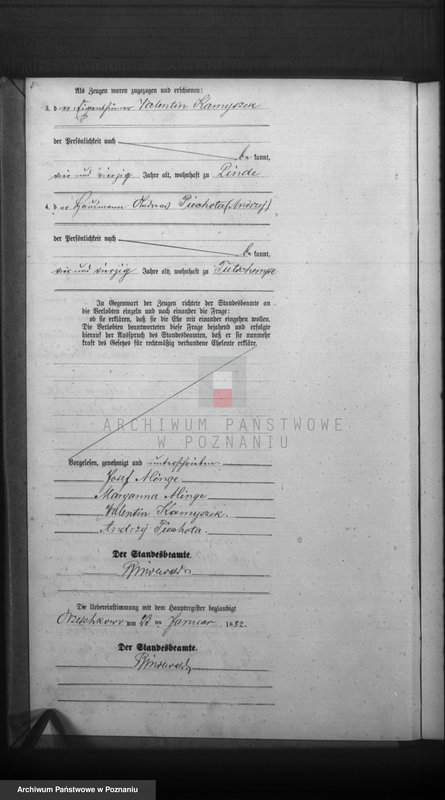 Als Zeugen waren zugezogen und erschienen:
3. der Eigenthümer Valentin Kamyszek
der Persönlichkeit nach
be kannt,
vier und vierzig Jahre alt, wohnhaft zu Linde
4. der Hausmann Andreas Piechota (Andrzej)
der Persönlichkeit nach
be kannt,
vier und vierzig Jahre alt, wohnhaft zu
In Gegenwart der Zeugen richtete der Standesbeamte an
die Verlobten einzeln und nach einander die Frage:
ob sie erklären, daß sie die Ehe mit einander eingehen wollen.
Die Verlobten beantworteten diese Frage bejahend und erfolgte
hierauf der Ausspruch des Standesbeamten, daß er sie nunmehr
kraft des Gesetzes für rechtmäßig verbundene Eheleute erkläre.
ARCHIWUM PAŃSTWOWE
W POZNANIU
Vorgelesen, genehmigt und unterschrieben
Josef
Maryanna
Valentin Kamyszek.
Andrzej Piechota.
Der Standesbeamte.
Die Uebereinstimmung mit dem Hauptregister beglaubigt
am 23 ten Januar 1882.
Der Standesbeamte.
Archiwum Państwowe w Poznaniu